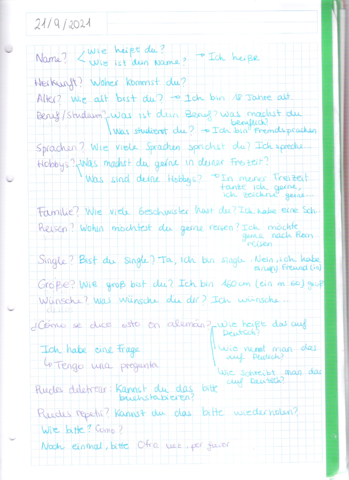 21/9/2021
Name? Wie heißt du?
Wie ist dein Name? → Ich heiße
Herkunft? Woher kommst du?
Alter? Wie alt bist du? → Ich bin Jahre alt.
Beruf/Studium? Was ist dein Beruf? Was machst du beruflich?
Was studierst du? → Ich bin Fremdsprachen
Sprachen? Wie viele Sprachen sprichst du? Ich spreche...
Hobbys? Was machst du gerne in deiner Freizeit?
Was sind deine Hobbys? → In meiner Freizeit
tanze ich gerne,
ich zeichne gerne...
Familie? Wie viele Geschwister hast du? Ich habe eine Sch.
Reisen? Wohin möchtest du gerne reisen? Ich möchte
gerne nach Rom
reisen
Single? Bist du Single? Ja, ich bin single. Nein, ich habe
einen Freund (in)
Größe? Wie groß bist du? Ich bin 160 cm (ein m 60) groß
Wünsche? Was wünschst du dir? Ich wünsche...
¿Cómo se dice esto en alemán? Wie heißt das auf
Deutsch?
Ich habe eine Frage Wie nennt man das
auf Deutsch?
↳ Tengo una pregunta Wie schreibt man das
auf Deutsch?
Puedes deletrear: Kannst du das bitte
buchstabieren?
Puedes repetir? Kannst du das bitte wiederholen?
Wie bitte? Cómo?
Noch einmal, bitte Otra vez, por favor